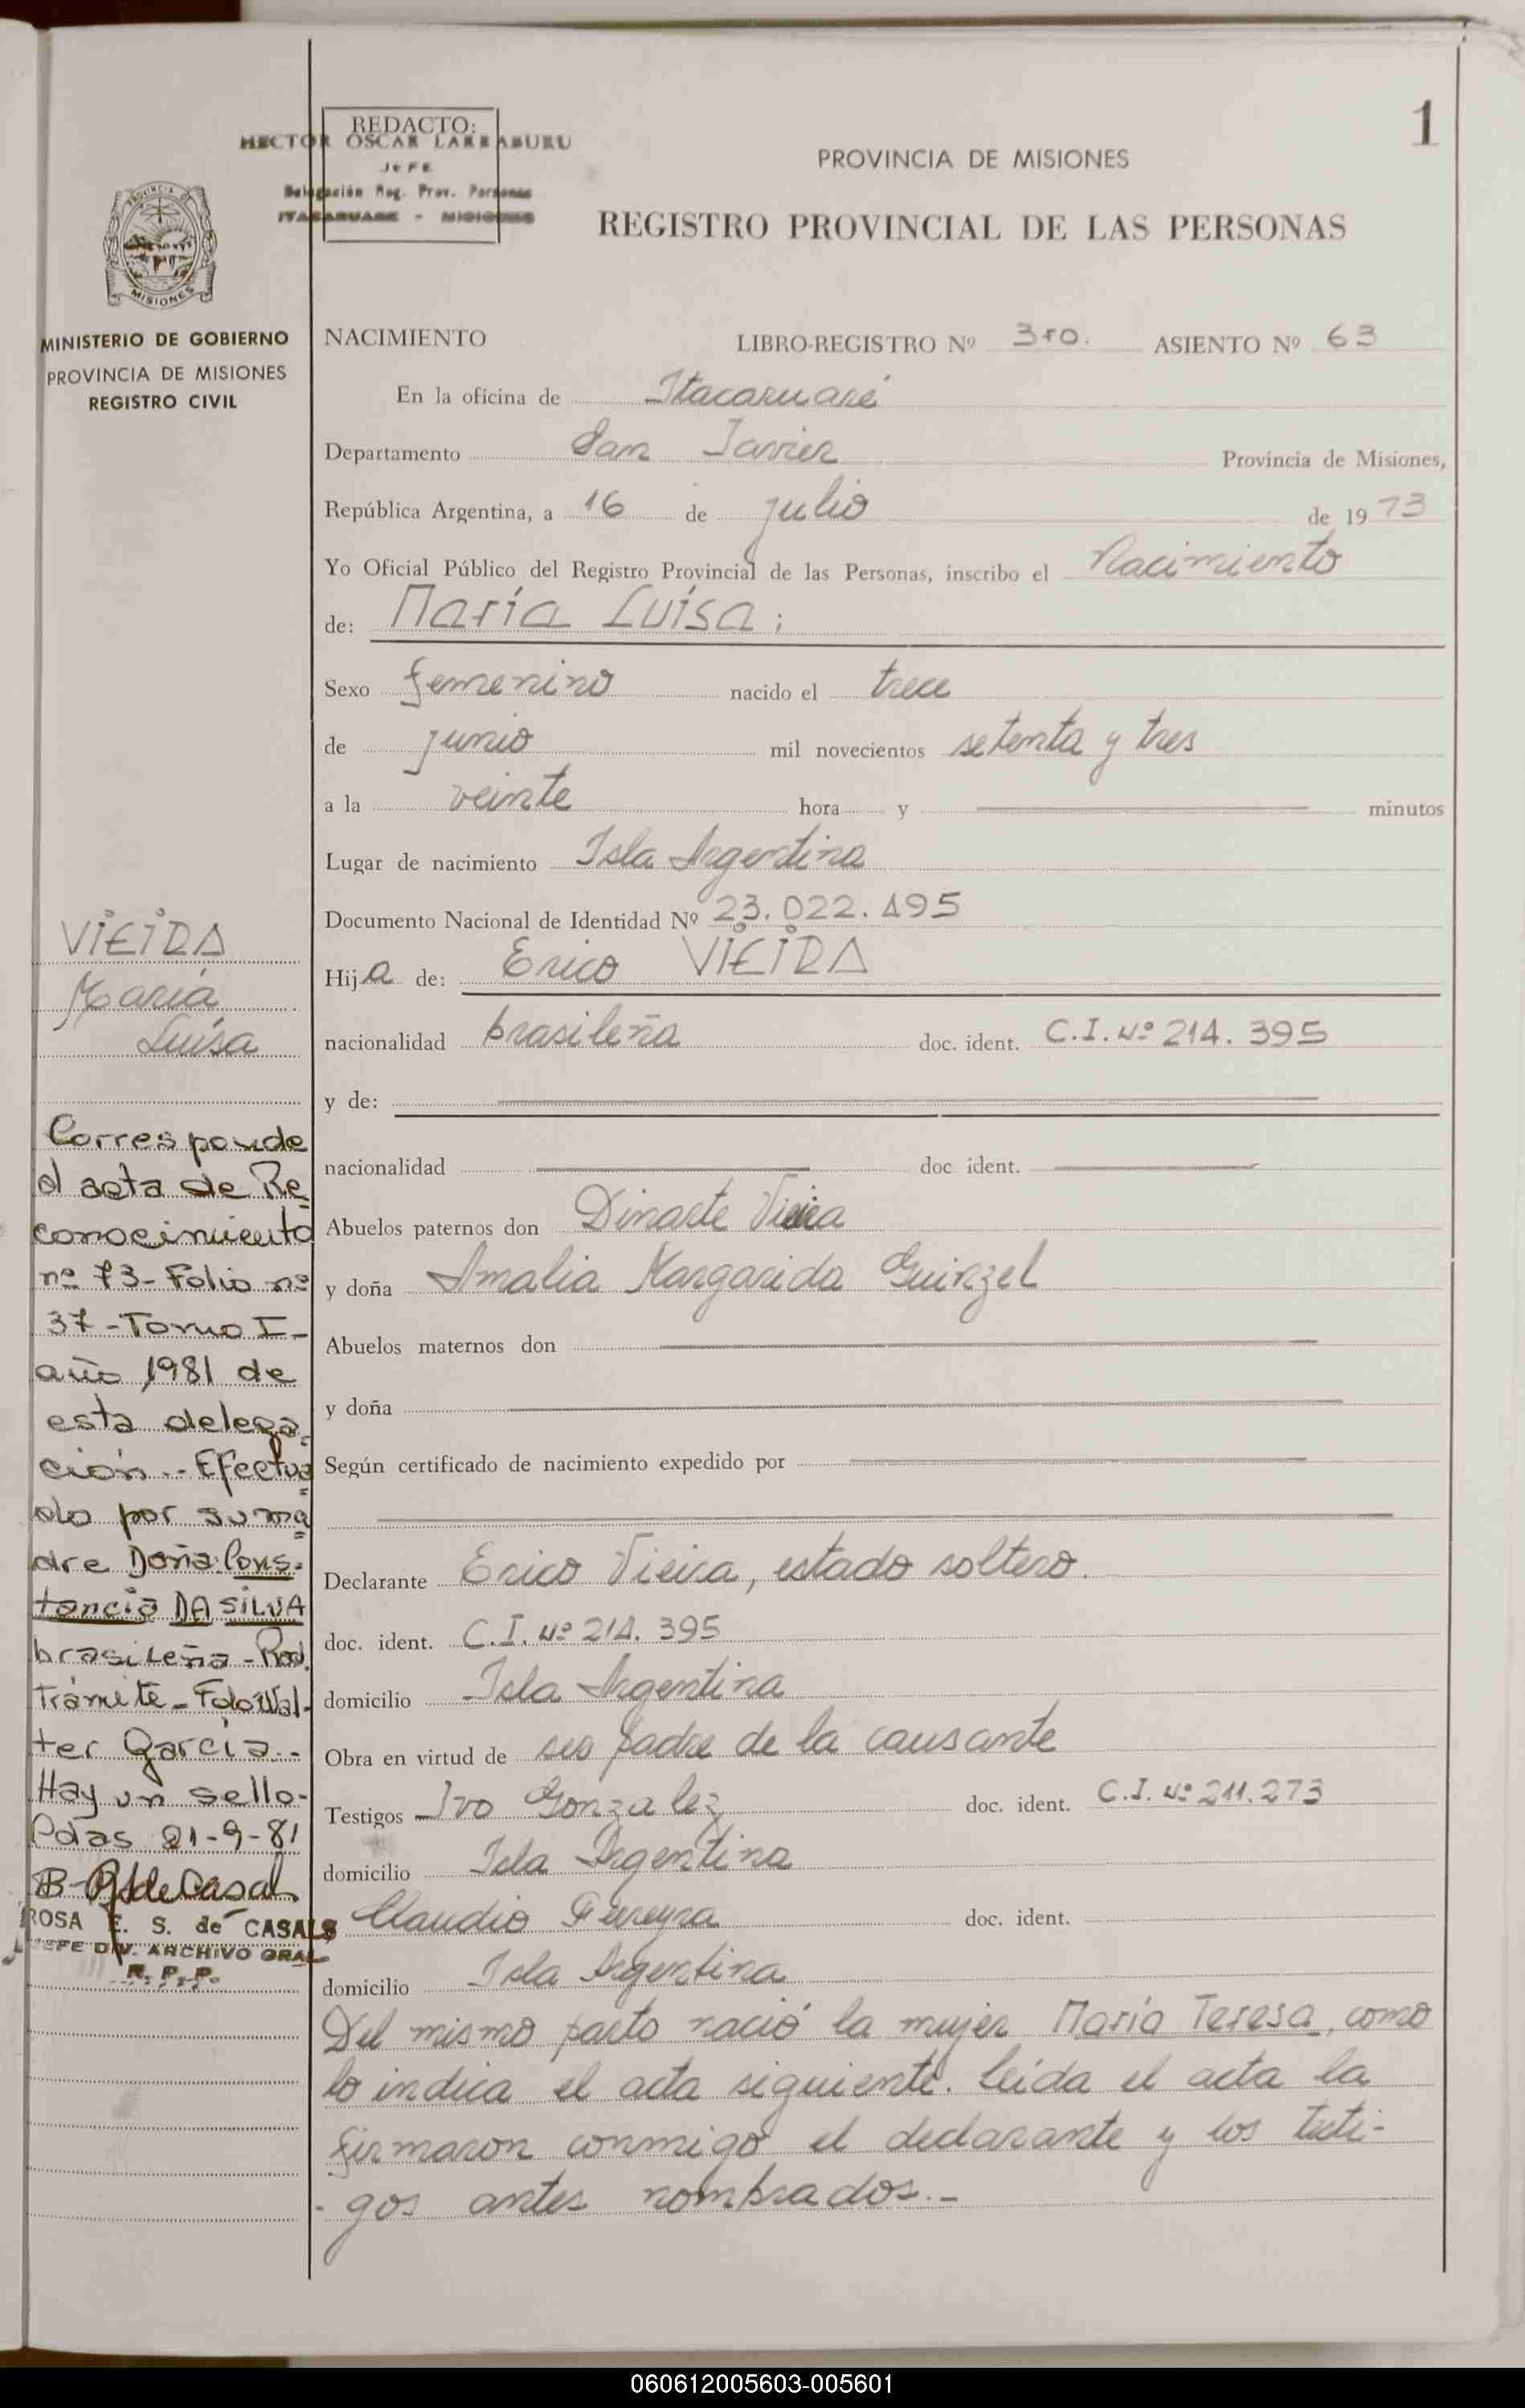 1
REDACTO:
HECTOR OSCAR LARRABURU
JEFE
Delegación Reg. Prov. Personas
ITACARUARE - MISIONES
PROVINCIA DE MISIONES
REGISTRO PROVINCIAL DE LAS PERSONAS
PROVINCIA DE
MISIONES
MINISTERIO DE GOBIERNO
PROVINCIA DE MISIONES
REGISTRO CIVIL
NACIMIENTO LIBRO-REGISTRO Nº 3ro. ASIENTO Nº 63
En la oficina de Itacaruaré
Departamento San Javier Provincia de Misiones,
República Argentina, a 16 de julio de 1973
Yo Oficial Público del Registro Provincial de las Personas, inscribo el Nacimiento
de: María Luisa;
Sexo femenino nacido el trece
de junio mil novecientos setenta y tres
a la veinte hora y minutos
Lugar de nacimiento Isla Argentina
Documento Nacional de Identidad Nº 23.022.495
Hija de: Erico VIEIRA
nacionalidad brasileña doc. ident. C.I. Nº 214.395
y de:
nacionalidad doc ident.
Abuelos paternos don Dinarte Vieira
y doña Amalia Margarida Guinzel
Abuelos maternos don
y doña
Según certificado de nacimiento expedido por
Declarante Erico Vieira, estado soltero.
doc. ident. C.I. Nº 214.395
domicilio Isla Argentina
Obra en virtud de ser padre de la causante
Testigos Ivo Gonzalez doc. ident. C.I. Nº 211.273
domicilio Isla Argentina
Claudio Pereyra doc. ident.
domicilio Isla Argentina
Del mismo parto nació la mujer María Teresa, como
lo indica el acta siguiente. leída el acta la
firmaron conmigo el declarante y los testi-
-gos antes nombrados.-
VIEIRA
María
Luisa
Corresponde
al acta de Re
conocimiento
nº 73- Folio nº
37 - Tomo I-
año 1981 de
esta delega=
ción.- Efectua
=
do por su ma
=
dre Doña: Cons=
tancia DA SILVA
brasileña - Rod.
Trámite - Fdo Wal-
ter García.-
Hay un sello-
Pdas 21-9-81
ROSA E. S. de CASALS
JEFE DIV. ARCHIVO GRAL
R. P. P.
060612005603-005601